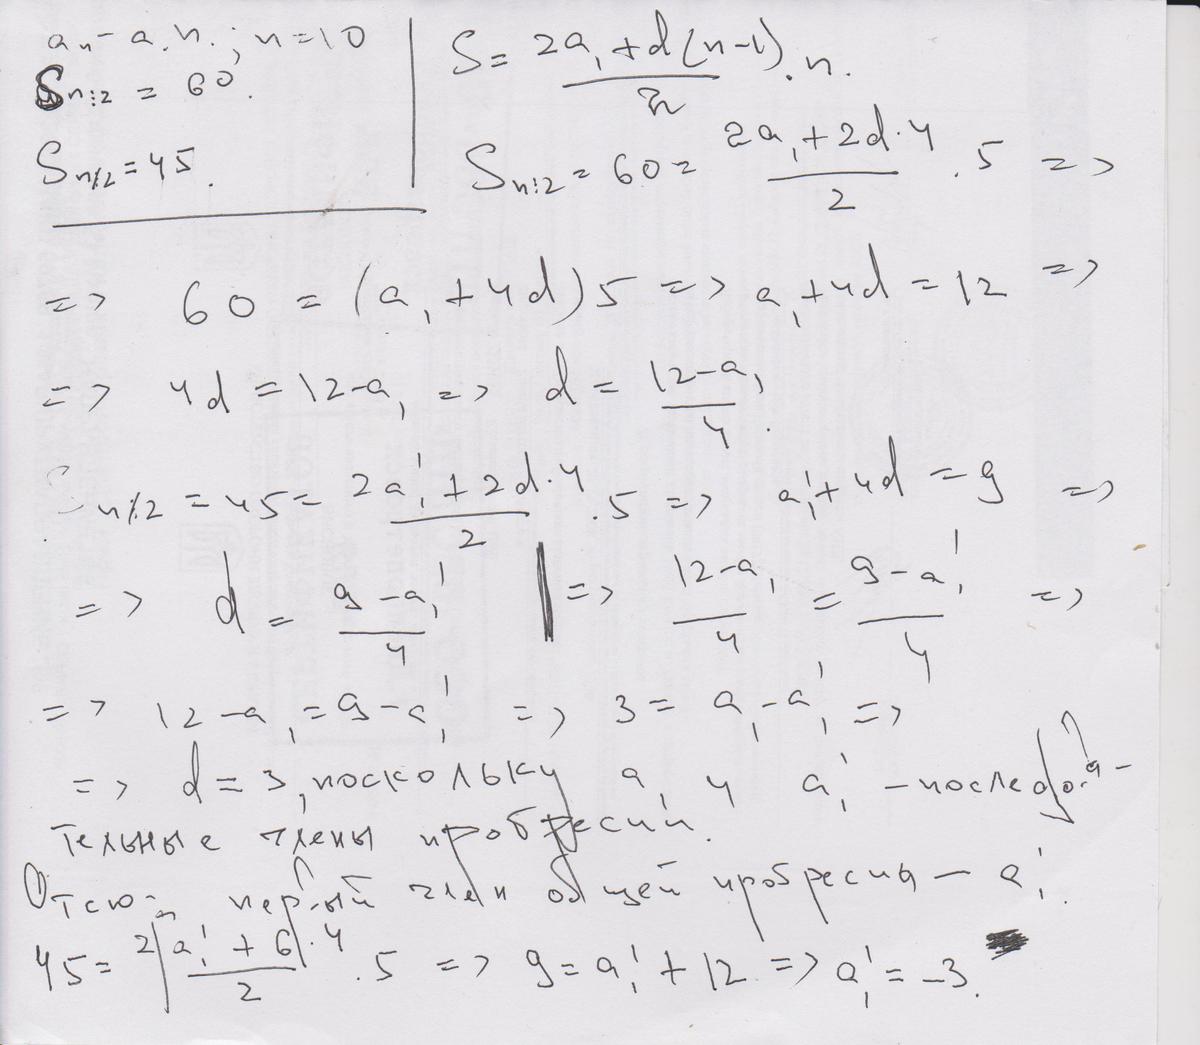 aₙ - а.п. ; n=10
Sₙ:₂ = 60.
Sₙ⁒₂ = 45.
S = (2a₁ + d(n-1))/2 · n.
Sₙ:₂ = 60 = (2a₁ + 2d·4)/2 · 5 =>
=> 60 = (a₁ + 4d)5 => a₁ + 4d = 12 =>
=> 4d = 12 - a₁ => d = (12 - a₁)/4.
Sₙ⁒₂ = 45 = (2a₁' + 2d·4)/2 · 5 => a₁' + 4d = 9 =>
=> d = (9 - a₁')/4 | => (12 - a₁)/4 = (9 - a₁')/4 =>
=> 12 - a₁ = 9 - a₁' => 3 = a₁ - a₁' =>
=> d = 3, поскольку a₁ и a₁' - последова-
тельные члены прогресии.
Отсюда первый член общей прогресия - a₁'.
45 = 2(a₁' + 6)·4/2 · 5 => 9 = a₁' + 12 => a₁' = -3.